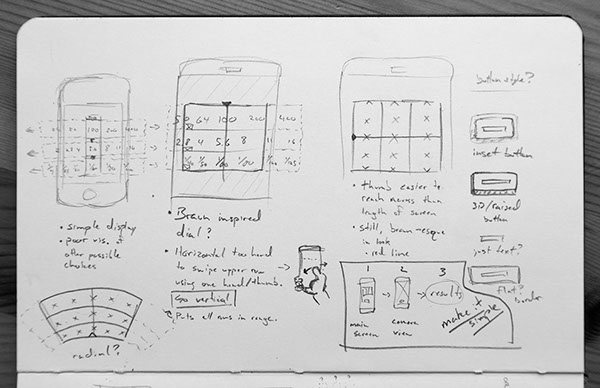 50 64 100 200 400
2.8 4 5.6 8 11 16
• simple display
• poor vis. of
other possible
choices
radial?
• Braun inspired
dial?
• Horizontal too hard
to swipe upper row
using one hand/thumb.
Go vertical
Puts all rows in range.
• thumb easier to
reach across than
length of screen
• Still, braun-esque
in look
• red line
1 2 3
results
main
screen
camera
view
make it
simple
button style?
inset button
3D/raised
button
just text?
flat?
border